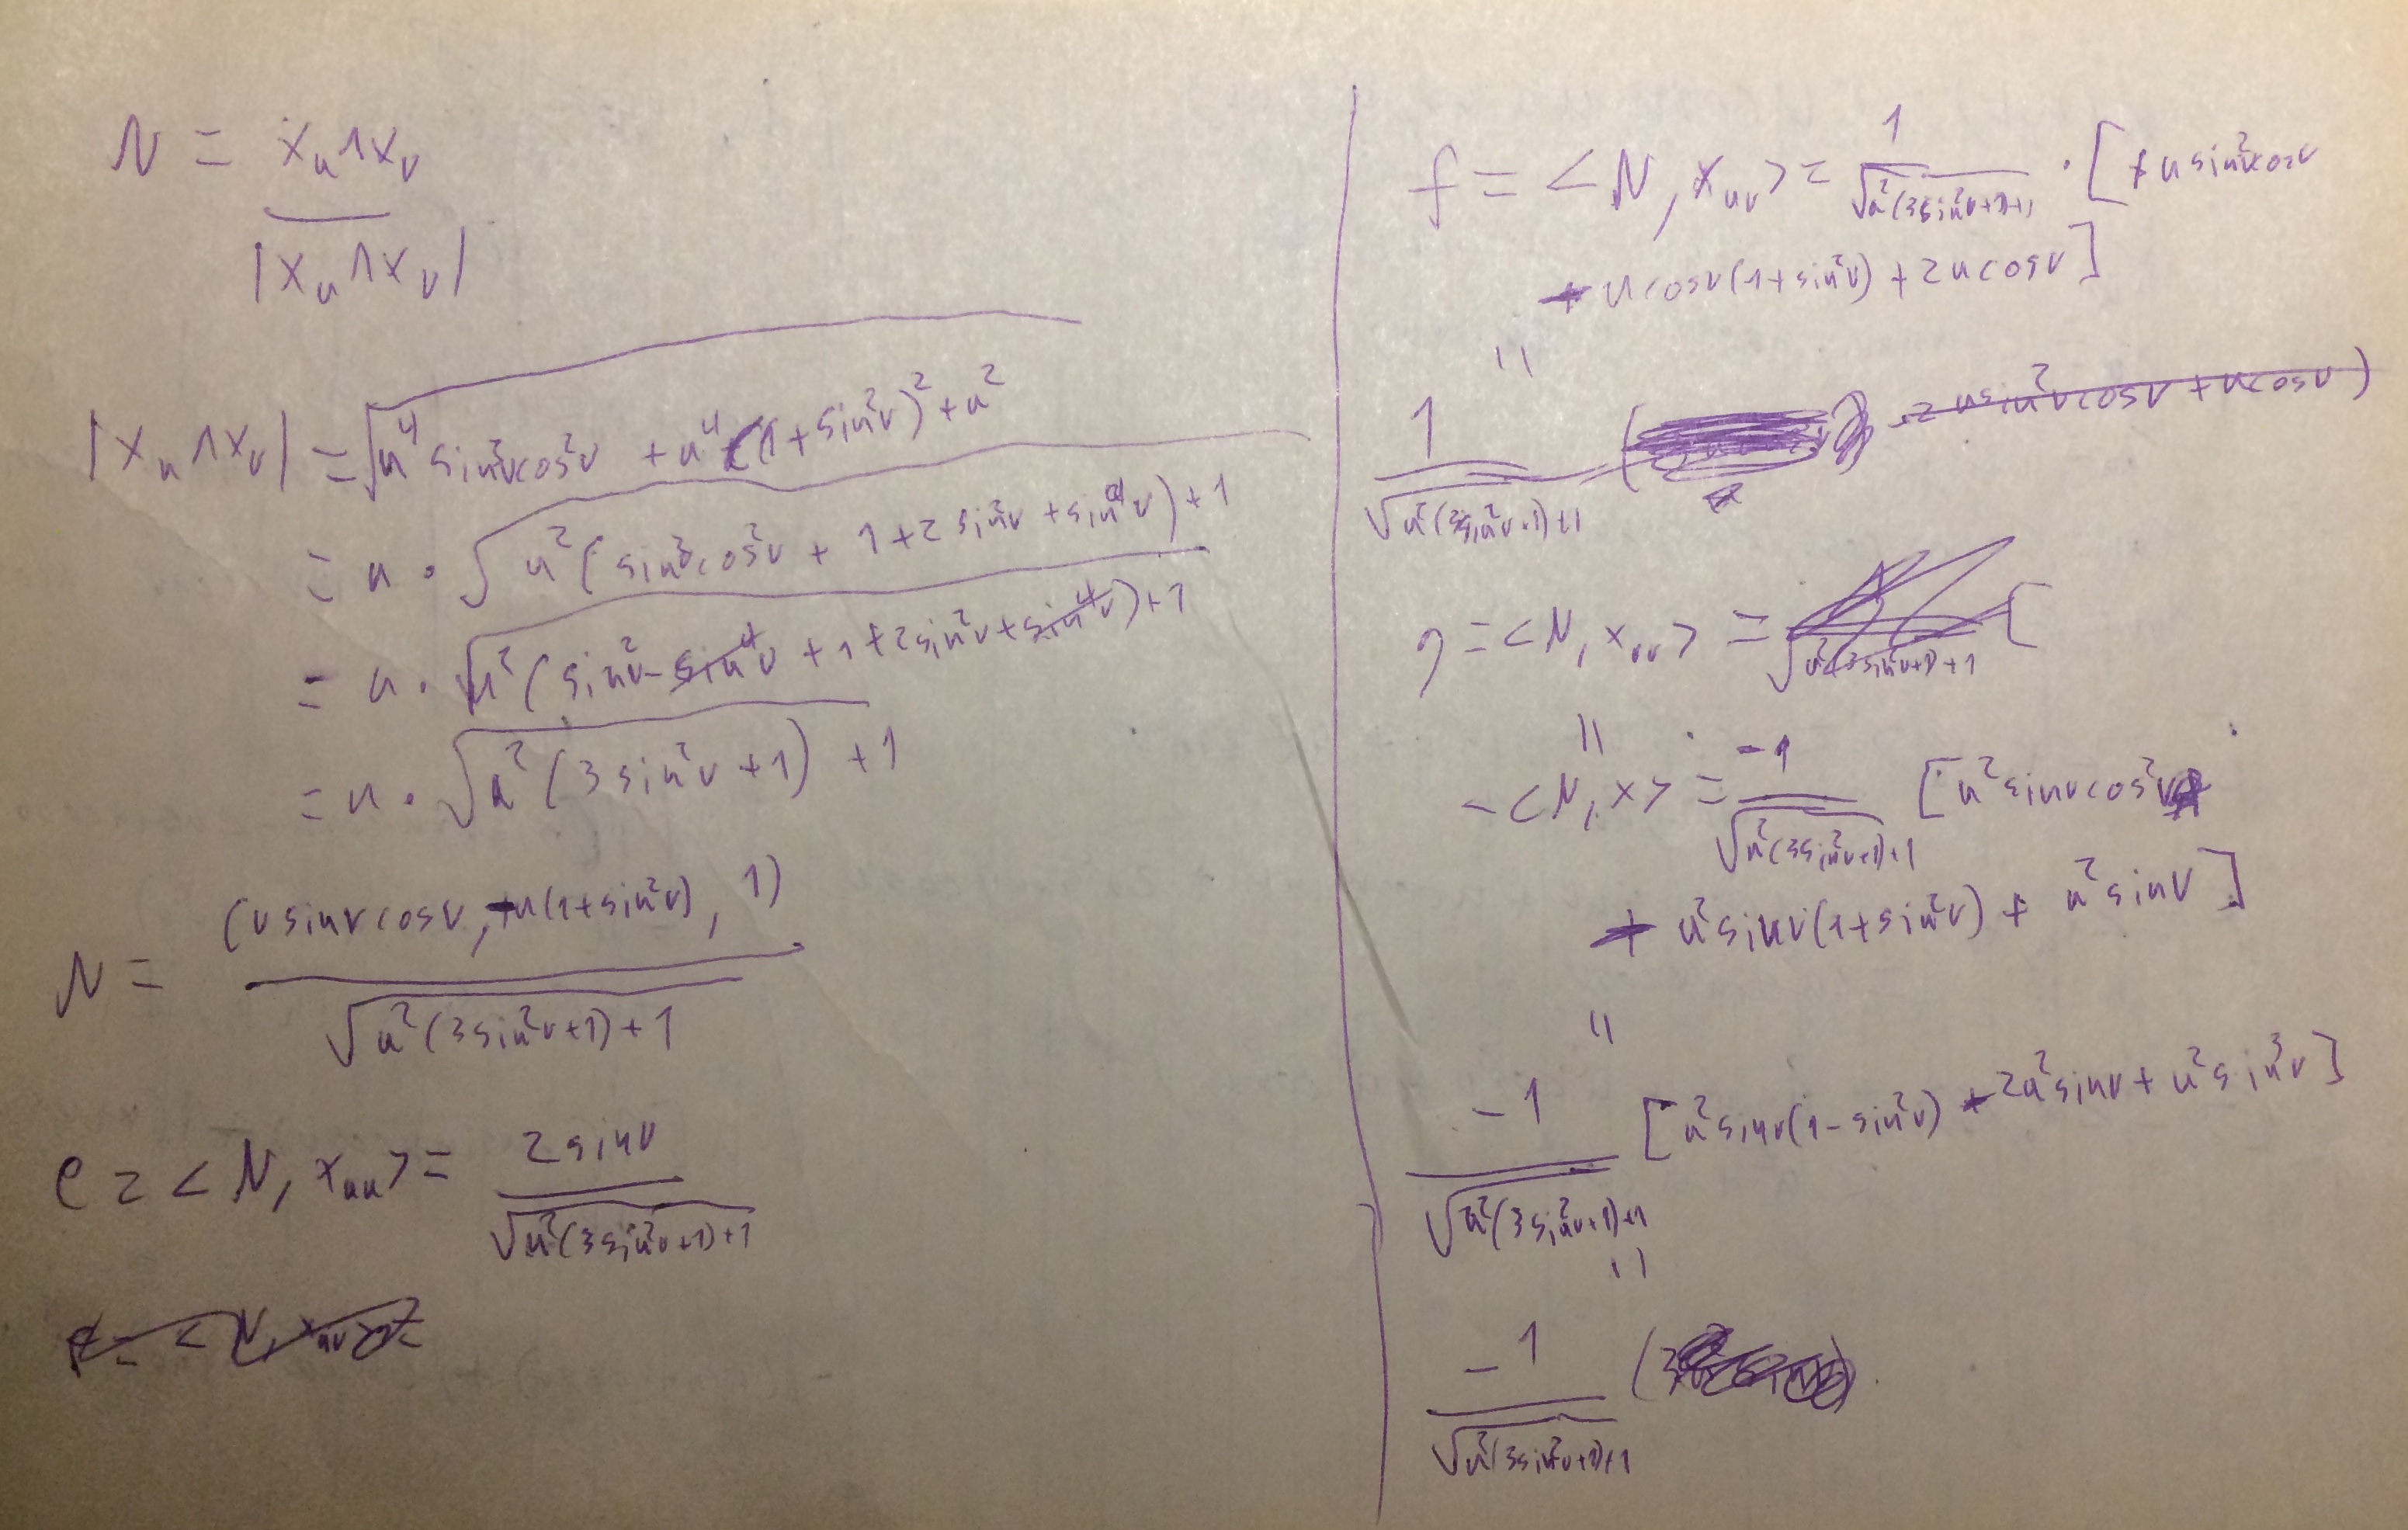 N = x_u ∧ x_v
|x_u ∧ x_v|
|x_u ∧ x_v| = √(u⁴ sin²v cos²v + u⁴ (1 + sin²v)² + u²)
= u · √(u² (sin²v cos²v + 1 + 2 sin²v + sin⁴v) + 1)
= u · √(u² (sin²v - sin⁴v + 1 + 2 sin²v + sin⁴v) + 1)
= u · √(u² (3 sin²v + 1) + 1)
(u sin v cos v, -u(1 + sin²v), 1)
N =
√(u² (3 sin²v + 1) + 1)
e = < N, x_uu > = 2 sin v
√(u² (3 sin²v + 1) + 1)
f = < N, x_uv > =
f = < N, x_uv > = 1 / √(u² (3 sin²v + 1) + 1) · [ + u sin²v cos v
+ u cos v (1 + sin²v) + 2 u cos v ]
||
1 / √(u² (3 sin²v + 1) + 1) ( 2 u sin²v cos v + u cos v )
g = < N, x_vv > = 1 / √(u² (3 sin²v + 1) + 1) [
||
- < N, x > = -1 / √(u² (3 sin²v + 1) + 1) [ u² sin v cos²v
+ u² sin v (1 + sin²v) + u² sin v ]
||
-1 / √(u² (3 sin²v + 1) + 1) [ u² sin v (1 - sin²v) + 2u² sin v + u² sin³v ]
||
-1 / √(u² (3 sin²v + 1) + 1) (3